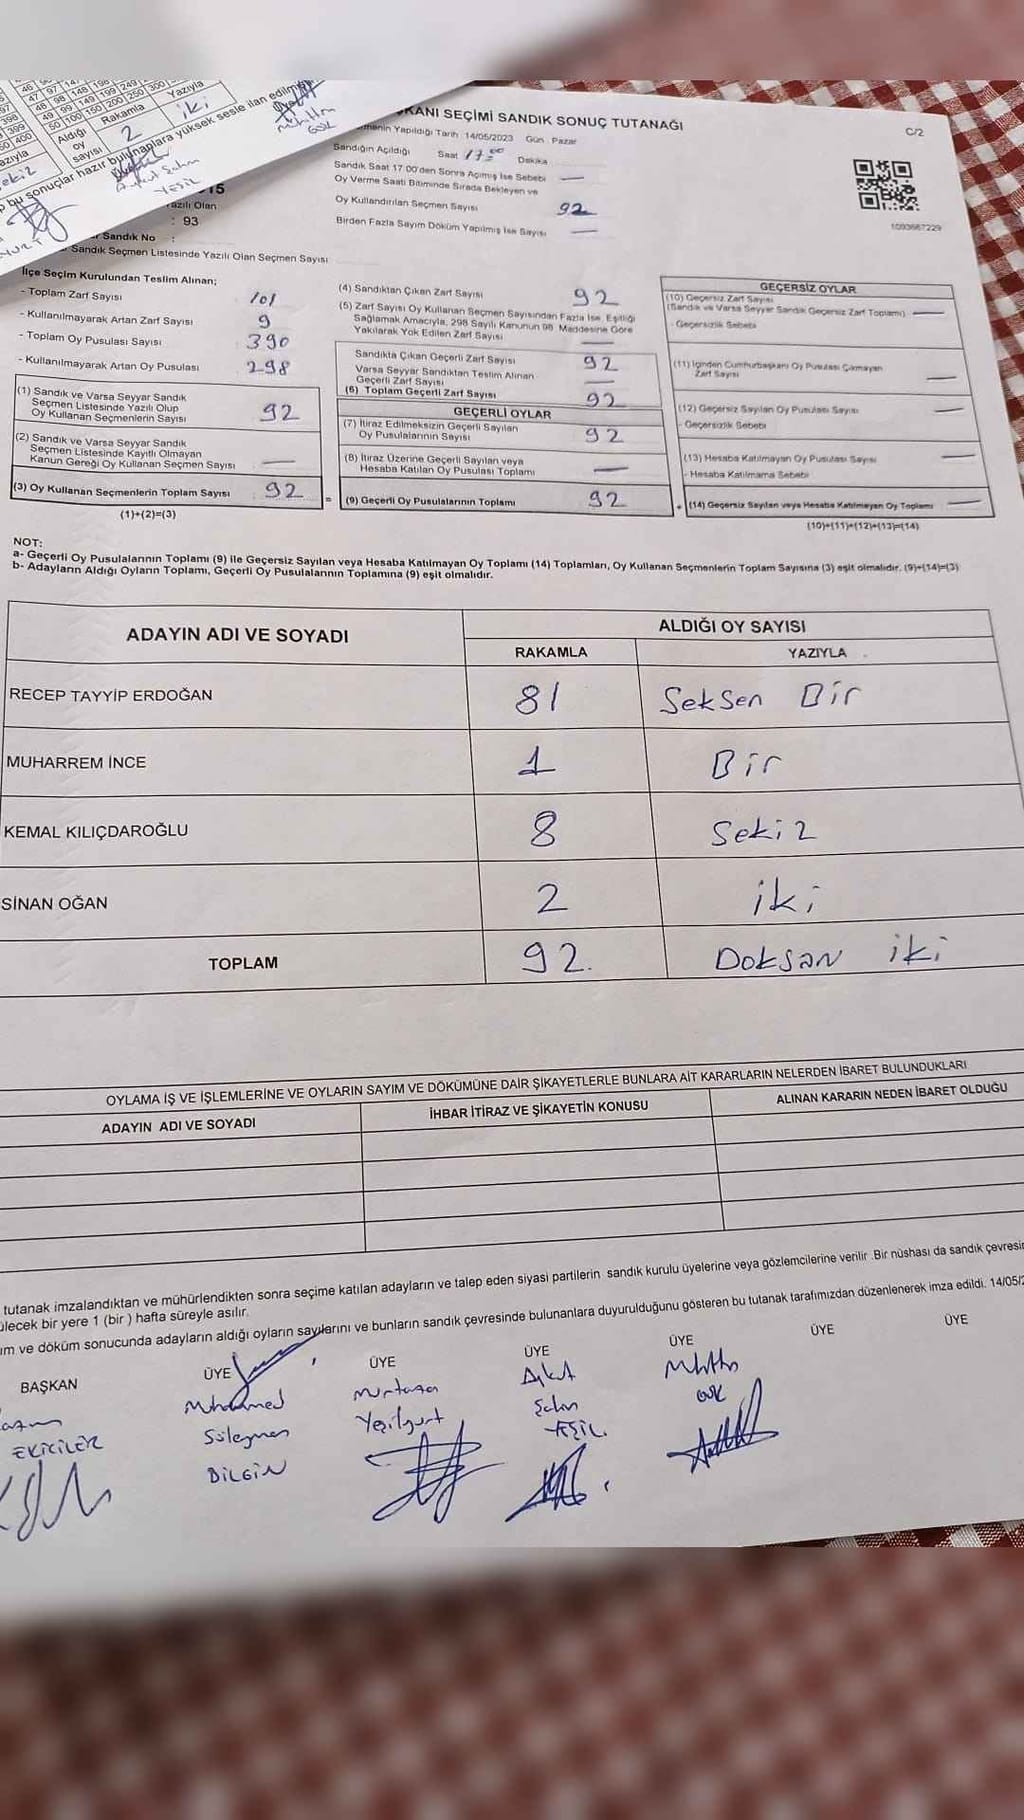 46 97 147 198 249
47 98 148 199
48 99 149 199 249
50 100 150 200 250 300
398
399
50 400
Aldığı oy sayısı
Rakamla
Yazıyla
2
iki
azıyla
ekiz
p bu sonuçlar hazır bulunanlara yüksek sesle ilan edilmiş
Aykut Şahin
YEŞİL
KANI SEÇİMİ SANDIK SONUÇ TUTANAĞI
C/2
menin Yapıldığı Tarih : 14/05/2023 Gün : Pazar
Sandığın Açıldığı Saat 17:00 Dakika
Sandık Saat 17:00'den Sonra Açımış İse Sebebi —
Oy Verme Saati Bitiminde Sırada Bekleyen ve
Oy Kullandırılan Seçmen Sayısı 92
Birden Fazla Sayım Döküm Yapılmış İse Sayısı —
1093667229
15
azılı Olan
: 93
r Sandık No :
Sandık Seçmen Listesinde Yazılı Olan Seçmen Sayısı
İlçe Seçim Kurulundan Teslim Alınan;
- Toplam Zarf Sayısı 101
- Kullanılmayarak Artan Zarf Sayısı 9
- Toplam Oy Pusulası Sayısı 390
- Kullanılmayarak Artan Oy Pusulası 298
(1) Sandık ve Varsa Seyyar Sandık
Seçmen Listesinde Yazılı Olup
Oy Kullanan Seçmenlerin Sayısı 92
(2) Sandık ve Varsa Seyyar Sandık
Seçmen Listesinde Kayıtlı Olmayan
Kanun Gereği Oy Kullanan Seçmen Sayısı —
(3) Oy Kullanan Seçmenlerin Toplam Sayısı 92 =
(1)+(2)=(3)
(4) Sandıktan Çıkan Zarf Sayısı 92
(5) Zarf Sayısı Oy Kullanan Seçmen Sayısından Fazla İse, Eşitliği
Sağlamak Amacıyla, 298 Sayılı Kanunun 98. Maddesine Göre
Yakılarak Yok Edilen Zarf Sayısı —
Sandıkta Çıkan Geçerli Zarf Sayısı 92
Varsa Seyyar Sandıktan Teslim Alınan
Geçerli Zarf Sayısı —
(6) Toplam Geçerli Zarf Sayısı 92
GEÇERLİ OYLAR
(7) İtiraz Edilmeksizin Geçerli Sayılan
Oy Pusulalarının Sayısı 92
(8) İtiraz Üzerine Geçerli Sayılan veya
Hesaba Katılan Oy Pusulası Toplamı —
(9) Geçerli Oy Pusulalarının Toplamı 92
GEÇERSİZ OYLAR
(10) Geçersiz Zarf Sayısı
(Sandık ve Varsa Seyyar Sandık Geçersiz Zarf Toplamı) —
- Geçersizlik Sebebi
(11) İçinden Cumhurbaşkanı Oy Pusulası Çıkmayan
Zarf Sayısı —
(12) Geçersiz Sayılan Oy Pusulası Sayısı —
- Geçersizlik Sebebi
(13) Hesaba Katılmayan Oy Pusulası Sayısı —
- Hesaba Katılmama Sebebi
+ (14) Geçersiz Sayılan veya Hesaba Katılmayan Oy Toplamı —
(10)+(11)+(12)+(13)=(14)
NOT:
a- Geçerli Oy Pusulalarının Toplamı (9) ile Geçersiz Sayılan veya Hesaba Katılmayan Oy Toplamı (14) Toplamları, Oy Kullanan Seçmenlerin Toplam Sayısına (3) eşit olmalıdır. (9)+(14)=(3)
b- Adayların Aldığı Oyların Toplamı, Geçerli Oy Pusulalarının Toplamına (9) eşit olmalıdır.
ADAYIN ADI VE SOYADI
ALDIĞI OY SAYISI
RAKAMLA
YAZIYLA
RECEP TAYYİP ERDOĞAN 81 Seksen Bir
MUHARREM İNCE 1 Bir
KEMAL KILIÇDAROĞLU 8 Sekiz
SİNAN OĞAN 2 iki
TOPLAM 92. Doksan iki
OYLAMA İŞ VE İŞLEMLERİNE VE OYLARIN SAYIM VE DÖKÜMÜNE DAİR ŞİKAYETLERLE BUNLARA AİT KARARLARIN NELERDEN İBARET BULUNDUKLARI
ADAYIN ADI VE SOYADI
İHBAR İTİRAZ VE ŞİKAYETİN KONUSU
ALINAN KARARIN NEDEN İBARET OLDUĞU
tutanak imzalandıktan ve mühürlendikten sonra seçime katılan adayların ve talep eden siyasi partilerin sandık kurulu üyelerine veya gözlemcilerine verilir. Bir nüshası da sandık çevresin
ülecek bir yere 1 (bir ) hafta süreyle asılır.
ım ve döküm sonucunda adayların aldığı oyların sayılarını ve bunların sandık çevresinde bulunanlara duyurulduğunu gösteren bu tutanak tarafımızdan düzenlenerek imza edildi. 14/05/2
BAŞKAN ÜYE ÜYE ÜYE ÜYE ÜYE ÜYE
EKİCİLER
Muhammed
Süleyman
BİLGİN
Murtaza
Yeşilyurt
Aykut
Şahin
YEŞİL